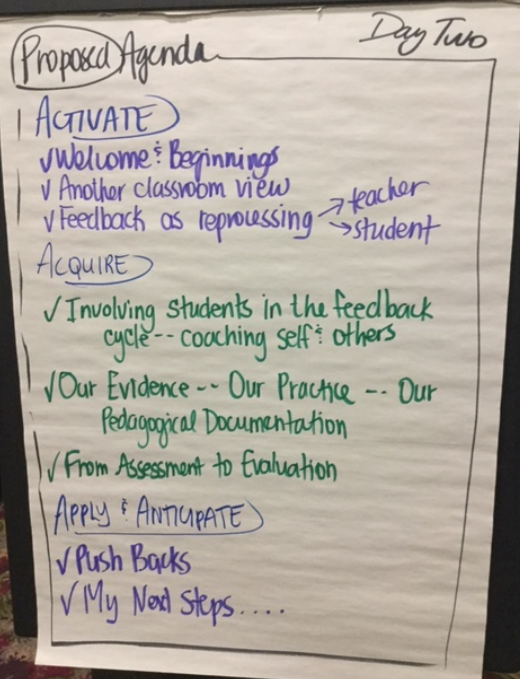 Proposed Agenda
Day Two
ACTIVATE
✓Welcome & Beginnings
✓ Another classroom view
✓ Feedback as reprocessing → teacher
→ student
ACQUIRE
✓ Involving students in the feedback
cycle -- coaching self & others
✓ Our Evidence -- Our Practice -- Our
Pedagogical Documentation
✓ From Assessment to Evaluation
APPLY & ANTICIPATE
✓ Push Backs
✓ My Next Steps....